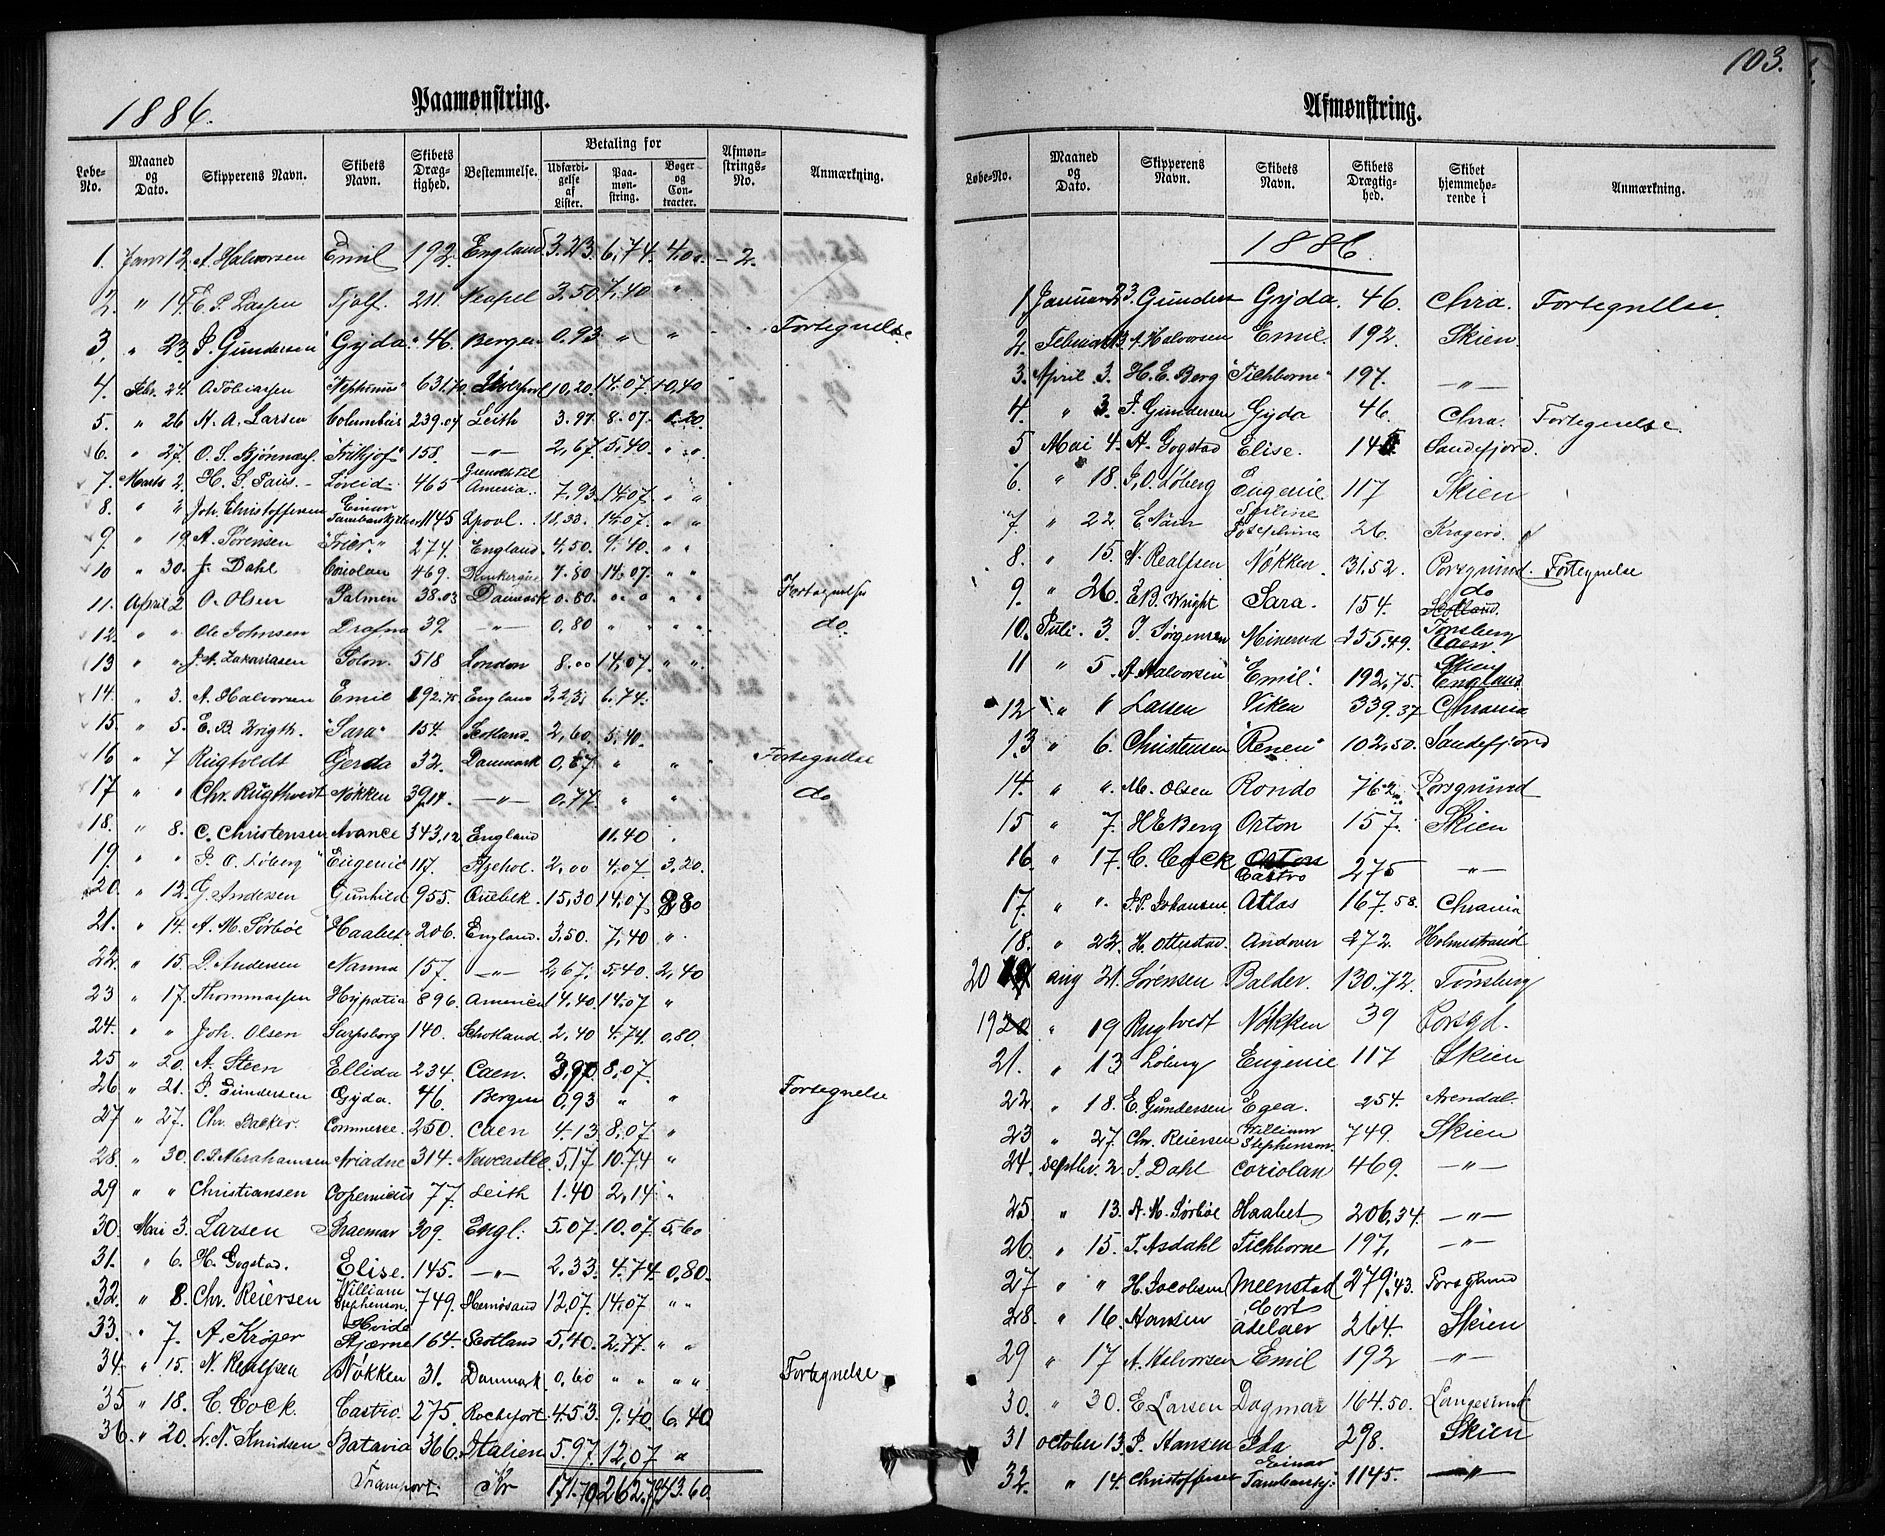 103.
1886.
Paamønstring.
Løbe-No. Maaned og Dato. Skipperens Navn. Skibets Navn. Skibets Drægtighed. Bestemmelse. Betaling for Udfærdigelse af Lister. Paamønstring. Bøger og Contracter. Afmønstrings-No. Anmærkning.
1. Janr 12. A. Halvorsen Emil 192. England 3.23. 6,74. 4.00. – 2.
2. " 14. E. P. Lassen Tjolf. 211. Neapel 3.50 7,40 "
3. " 23. P. Gundersen Gyda. 46. Bergen 0.93 " " Fortegnelse
4. Febr. 24. O. Tobiassen "Neptunus" 631.70. Liverpool 10,20. 14.07. 10,40
5. " 26 H. A. Larsen Columbus 239.04 Leith 3.97. 8.07.
6. " 27. O. S. Bjørnness. "Frithjof" 158. —"— 2,67. 5,40. "
7. Marts 2. H. S. Paus. Løveid. 465 Ameria. 7,93. 14.07. " "
8. " " Joh. Christoffersen Einar Tambarskjelver 1145 Lpool. 18.33. 14.07. " "
9. " 19. A. Sørensen "Frier." 274. England. 4,50. 9.40. " "
10 " 30. J. Dahl Coriolan 469. Dunkerque 7.80 14.07. " "
11. April 2 O. Olsen Palmen 38.03 Danmark 0.80. " " " Fortegnelse
12. " " Ole Johnsen Drafna 39. —"— 0,80 " " " do.
13 " " J. A. Zakariasen Solon. 518 London 8.00 14,07. " "
14. " 3. A. Halvorsen Emil 192.75 England 3,23. 6.74.
15. " 5. E. B. Wrigth. "Sara" 154. Scotland. 2,60. 5,40.
16 " 7 Rugtvedt Gerda 32. Danmark 0,87. " " Fortegnelse
17 " " Chr. Rugthvedt Nökken 39,14. —"— 0.77. " " do
18. " 8. C. Christensen Avance 343,12 England 11.40
19. " " P. O. Löberg "Eugenie 117. 2,00 4,07. 3,20.
20. " 12. G. Andersen Gunhild 955. Quebek. 15,30 14,07. 2.80
21. " 14. A. M. Sørbøe "Haabet" 206. England. 3.50. 7,40 "
22. " 15. D. Andersen Nanna 157. —"— 2,67. 5,40. 2,40
23 " 17. Thommassen Hypatia 896. Amerien 14.40. 14.07 "
24. " " Joh. Olsen Sarpsborg 140. Schotland. 2,40 4.74. 0,80.
25 " 20. A. Steen Ellida 234. Caen. 3,90 8,07.
26 " 21. P. Gundersen Gyda. 46. Bergen 0,93 " " Fortegnelse
27 " 27. Chr. Backer. Commerse. 250. Caen 4.13. 8,07. "
28. " 30. O. P. Abrahamsen Ariadne 314. Newcastle. 5,17. 10.74 "
29 " " Christiansen Copernicus 77. Leith 1.40 2,14 "
30. Mai 3. Larsen Braemar 309. Engl: 5.07. 10.07. 5,60
31. " 6. H. Gogstad. Elise. 145. —"— 2,33. 4.74. 0,80.
32. " 8. Chr. Reiersen William Stephenson. 749. Hernösand 12.07. 14.07 " "
33. " 7. A. Krøger Hvide Stjærne 164. Scotland 5,40. 2,77. " "
34. " 15. N. Realfsen Nökken 31. Danmark. 0,60 " " " " Fortegnelse
35 " 18. C. Cock. Castro. 275. Rochefort. 4.53. 9.40. 6.40
36. " 20. L. N. Knudsen Batavia 366. Italien 5.97. 12,07 "
Transport. Kr 171.70 262.79 43.60.
Afmønstring.
Løbe-No. Maaned og Dato. Skipperens Navn. Skibets Navn. Skibets Drægtighed. Skibet hjemmehørende i Anmærkning.
1886.
1 Januar 23. Gunders Gyda. 46. Chra. Fortegnelse.
2. Februar 13. A. Halvorsen Emil. 192. Skien.
3. April 3. H. E. Berg "Tichborne" 197. —"—
4 " 3. P. Gundersen Gyda 46. Chra. Fortegnelse.
5 Mai 4. H. Gogstad Elise. 145. Sandefjord.
6. " 18. P. O. Løberg Eugenie 117 Skien
7 " 22. Josephine 26. Kragerø.
8. " 15. N. Realfsen Nökken. 31.52. Porsgrund. Fortegnelse
9. " 26. E. B. Wright Sara. 154. do
10. Juli. 3. J. Jørgensen Minerva 355.49. Tønsberg Caen.
11 " 5. A. Halvorsen "Emil" 192,75. Skien England
12 " " Larsen Viken 339.37 Chrania
13 " 6. Christensen "Renen" 102,50. Sandefjord
14. " " M. Olsen Rondo 762. Porsgrund
15 " 7. H E Berg Orton 157. Skien
16. " 17. C. Cock Castro 275 —"—
17. " " J. P. Johansen. Atlas 167.58. Chrania
18. " 22. H. Otterstad. Andover 272. Holmestrand
20 aug 21. Sørensen Balder. 130.72. Tønsberg
19 " 19 Rugtvedt Nökken 39 Porsgd.
21. " 13 Løberg Eugenie 117 Skien
22 " 18. E. Gundersen Egea. 254. Arendal.
23 " 27. Chr. Reiersen William Stephenson 749. Skien
24. Septbr. 2. J. Dahl Coriolan 469. —"—
25. " 13. A. M. Sørbøe Haabet 206,34. —"—
26. " 15. T. Asdahl Tichborne 197. —"—
27 " " H. Jacobsen Meenstad 279.43. Porsgrund
28. " 16. Hansen Cort Adelaer 264. Skien
29 " 17 A. Halvorsen Emil 192 —"—
30. " 30. E Larsen Dagmar 164.50. Langesund
31 October 13. P. Hansen Ida 298. Skien
32. " 14. Christoffersen Einar Tambarskj: 1145. —"—